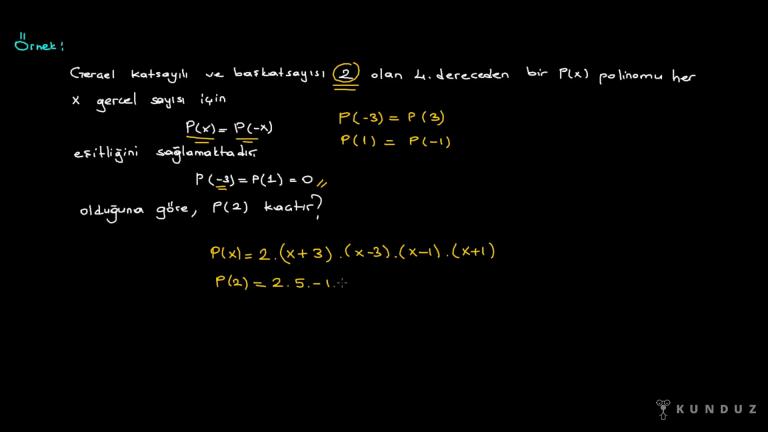 Örnek:
Gerçel katsayılı ve başkatsayısı 2 olan 4. dereceden bir P(x) polinomu her
x gerçel sayısı için
P(x) = P(-x)
P(-3) = P(3)
P(1) = P(-1)
eşitliğini sağlamaktadır.
P(-3) = P(1) = 0
olduğuna göre, P(2) kaçtır?
P(x) = 2.(x+3).(x-3).(x-1).(x+1)
P(2) = 2.5.-1.
KUNDUZ